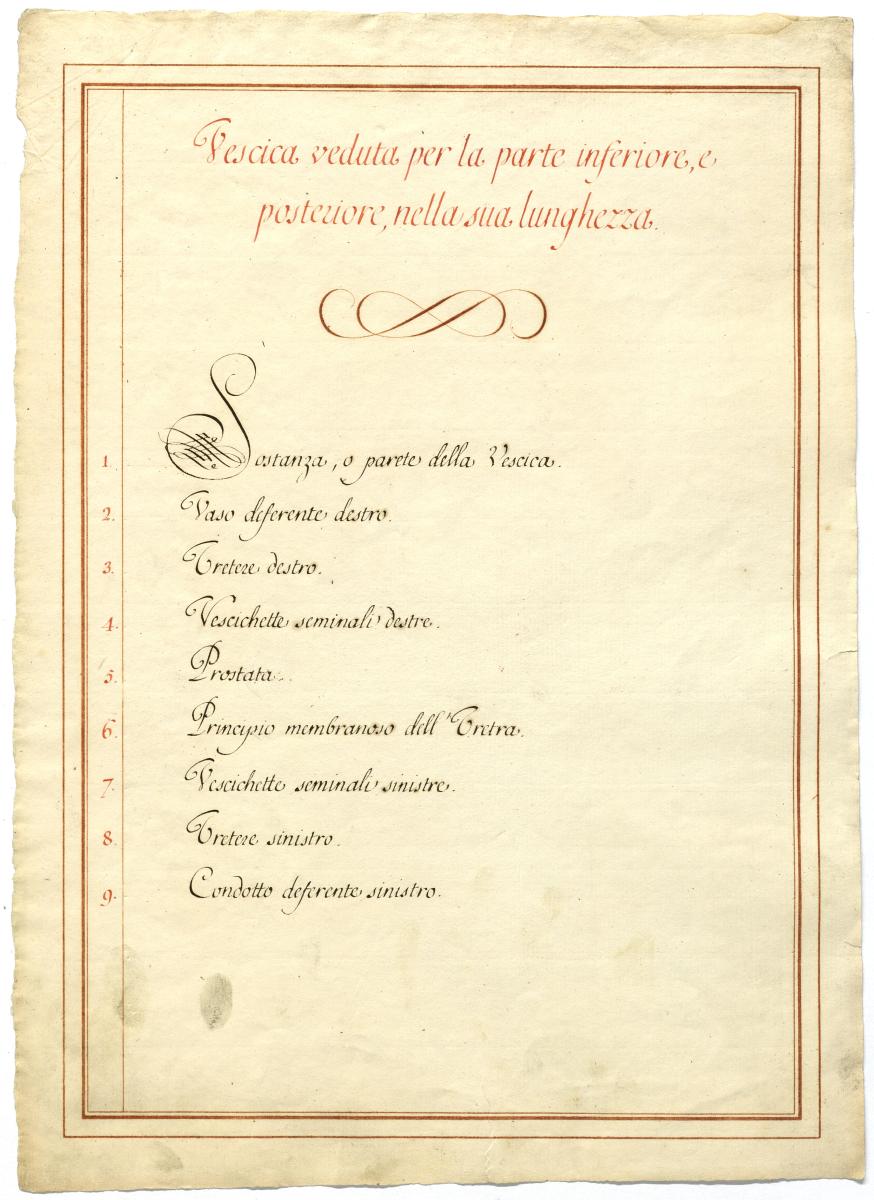 Vescica veduta per la parte inferiore, e
posteriore, nella sua lunghezza.
1. Sostanza, o parete della Vescica.
2. Vaso deferente destro.
3. Uretere destro.
4. Vescichette seminali destre.
5. Prostata.
6. Principio membranoso dell'Uretra.
7. Vescichette seminali sinistre.
8. Uretere sinistro.
9. Condotto deferente sinistro.